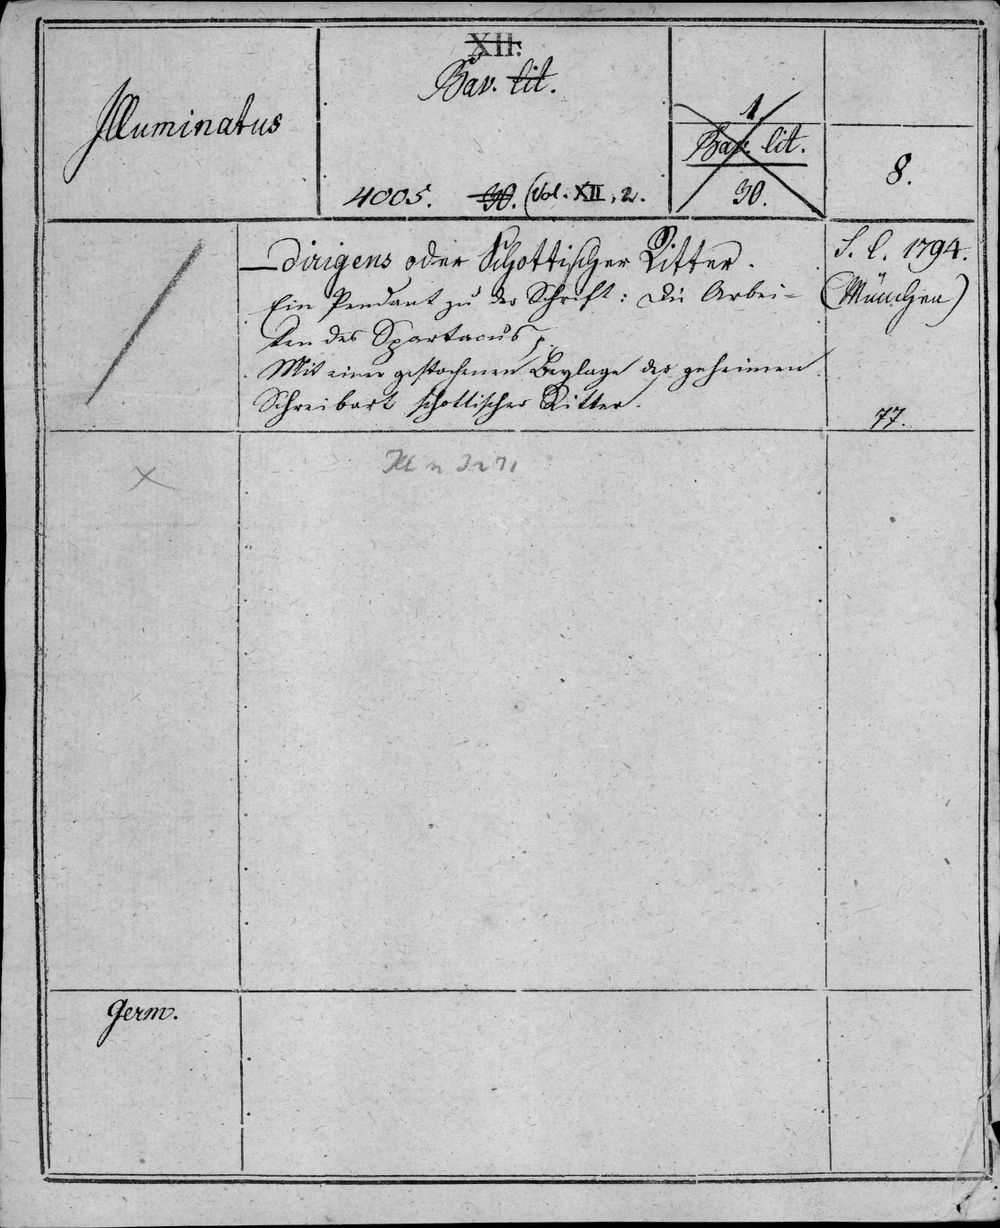 Illuminatus
XII.
Bav. lit.
4005. 30. (Vol. XII, 2.
1
Bav. lit.
30.
8.
— Dirigens oder Schottischer Ritter.
Ein Pendant zu der Schrift: Die Arbei-
ten des Spartacus p.
Mit einer gestochenen Beylage der geheimen
Schreibart schottischer Ritter.
S. l. 1794.
(München)
77.
Germ.